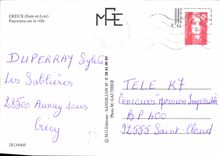 DREUX (Eure-et-Loir)
Panorama sur la ville
MGE
DUPERRAY Sylvie
Les Sablières
28500 Aunay sous
Crécy
TELE K7
Concours "Mission Impossible"
BP 400
92555 Saint-Cloud
28134005